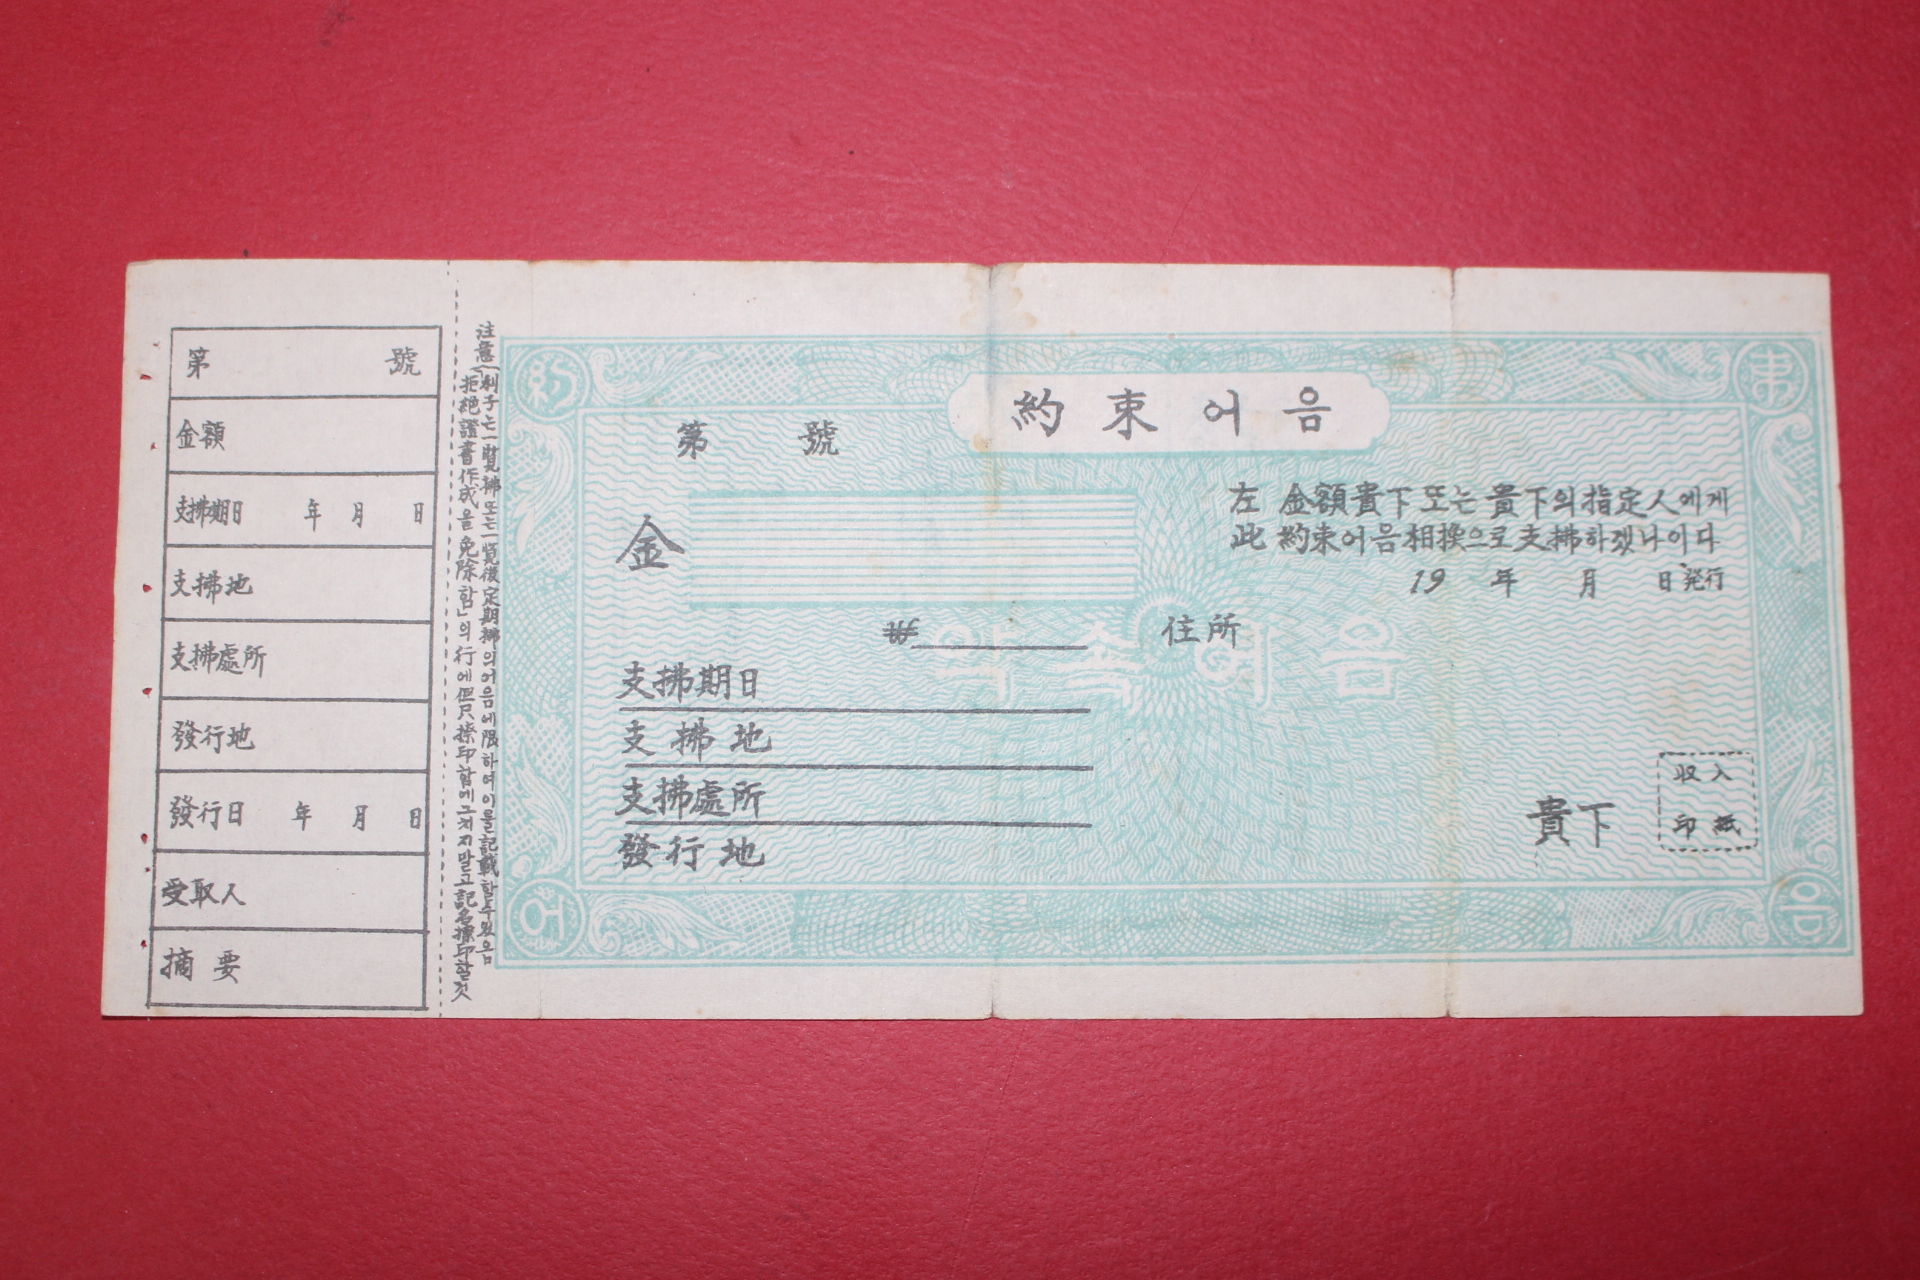 第 號
金額
支拂期日 年 月 日
支拂地
支拂處所
發行地
發行日 年 月 日
受取人
摘要
注意
利子는 一覽拂 또는 一覽後定期拂의 어음에 限하여 이를 記載할 수 있음
「拒絶證書作成을 免除함」의 行에 但只 捺印함에 그치지 말고 記名捺印할 것
約束어음
約
束
第 號
左 金額 貴下 또는 貴下의 指定人에게
此 約束어음 相換으로 支拂하겠나이다
金
19 年 月 日 発行
₩
住所
약속어음
支拂期日
支拂地
支拂處所
發行地
貴下
収入
印紙
어
음